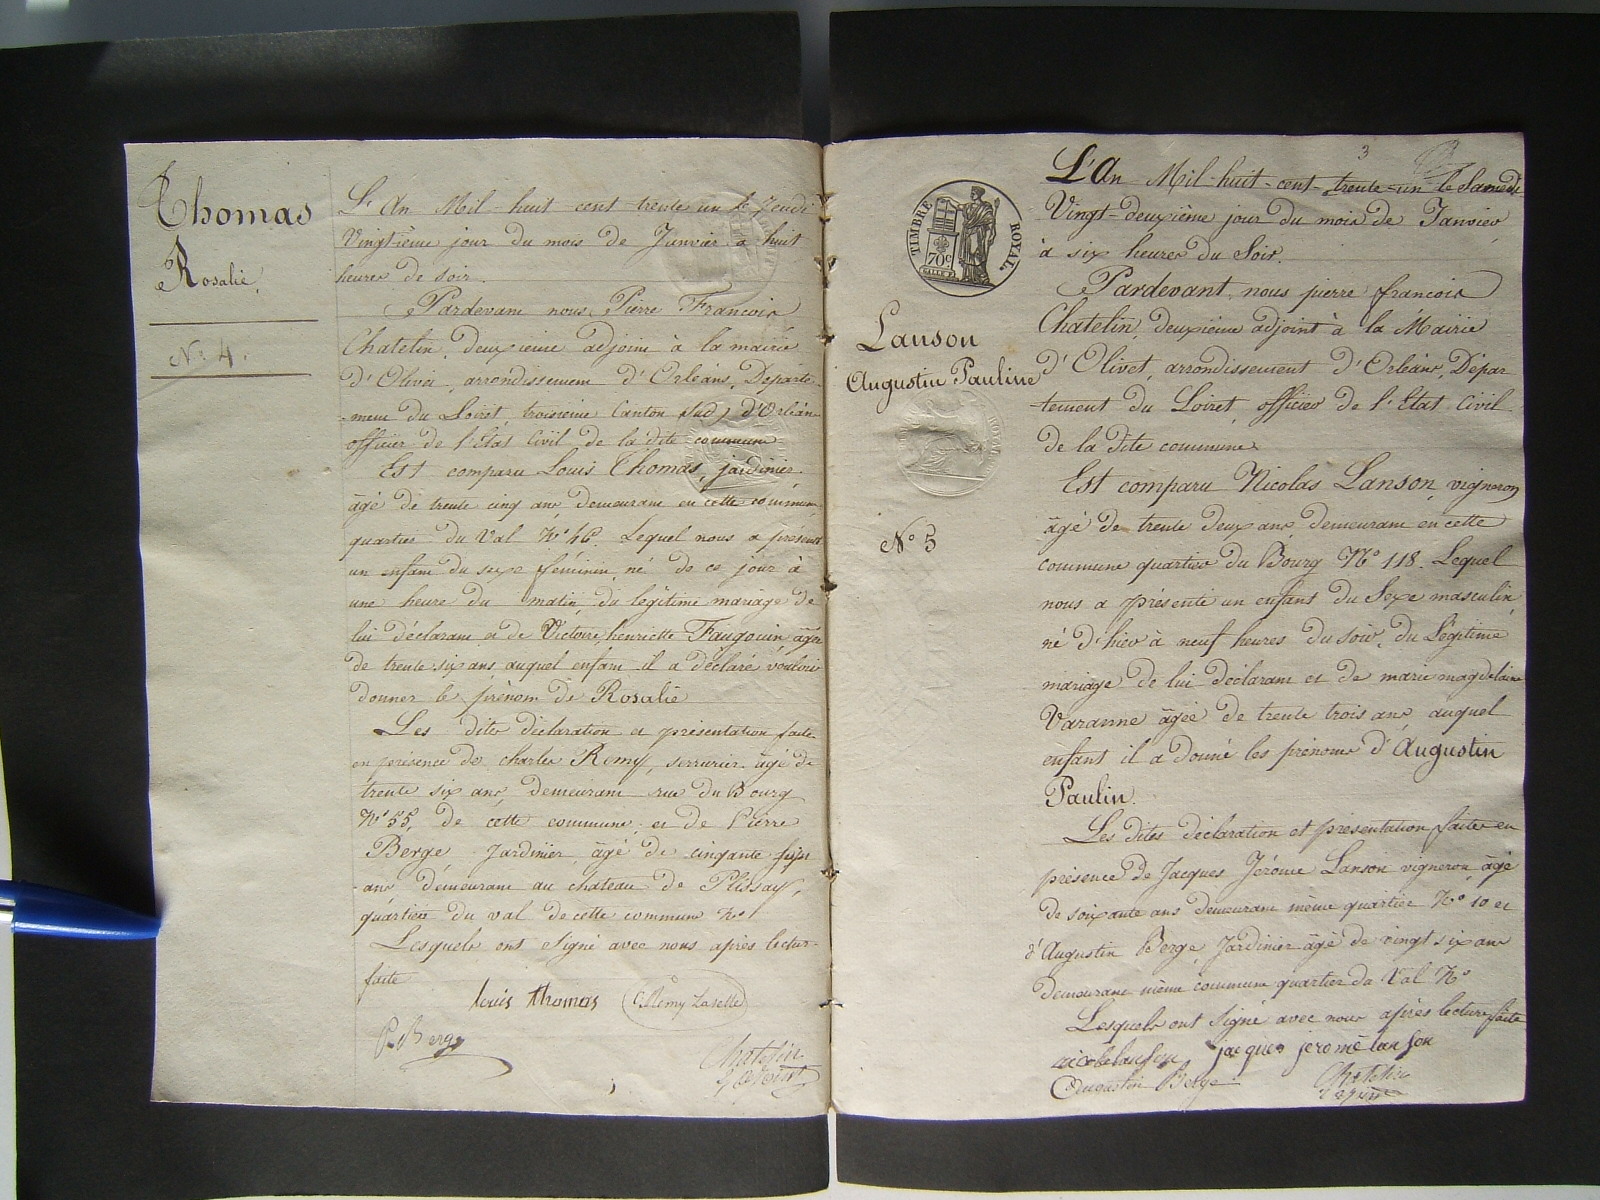 Thomas
Rosalie
N.º 4.
L'An Mil-huit cent trente un le Jeudi
Vingtième jour du mois de Janvier à huit
heures de soir.
Pardevant nous Pierre François
Chatelin, deuxieme adjoint à la mairie
d'Olivet, arrondissement d'Orléans, Départe-
-ment du Loiret, troisieme Canton Sud, d'Orléans
officier de l'Etat Civil de la dite commune
Est comparu Louis Thomas, jardinier
âgé de trente cinq ans, demeurant en cette commune
quartier du Val Nº 46. Lequel nous a présenté
un enfant du sexe féminin, né de ce jour à
une heure du matin, du légitime mariage de
lui déclarant et de Victoire, henriette Faugouin âgée
de trente six ans, auquel enfant il a déclaré vouloir
donner le prénom de Rosalie
Les dites déclaration et présentation faite
en présence de charles Remy, serrurier âgé de
trente six ans, demeurant rue du Bourg
Nº 55, de cette commune, et de Pierre
Berge, Jardinier, âgé de cinquante
ans demeurant au chateau de Plissay,
quartier du val de cette commune Nº
Lesquels ont signé avec nous après lectur-
faite
louis thomas
P. Berge
Chatelin
adjoint
3
TIMBRE ROYAL.
70c
Lanson
Augustin Pauline
Nº 5
L'An Mil-huit-cent-trente-un le Samedi
Vingt-deuxième jour du mois de Janvier
à six heures du Soir.
Pardevant nous pierre françois
Chatelin, deuxième adjoint à la Mairie
d'Olivet, arrondissement d'Orléans, Dépar
-tement du Loiret, officier de l'Etat Civil
de la dite commune
Est comparu Nicolas Lanson, vigneron
âgé de trente deux ans demeurant en cette
commune quartier du Bourg Nº 118. Lequel
nous a présenté un enfant du Sexe masculin
né d'hier à neuf heures du soir, du Légitime
mariage de lui déclarant et de marie magdelaine
Varanne âgée de trente trois ans auquel
enfant il a donné les prénoms d'Augustin
Paulin.
Les dites déclaration et présentation faite en
présence de Jacques Jérôme Lanson vigneron, âgé
de soixante ans demeurant même quartier Nº 10 et
d'Augustin Berge, Jardinier âgé de vingt six ans
demeurant même commune quartier du Val Nº
Lesquels ont Signé avec nous après lecture faite
jacques jerome lanson
Augustin Berge
Chatelin